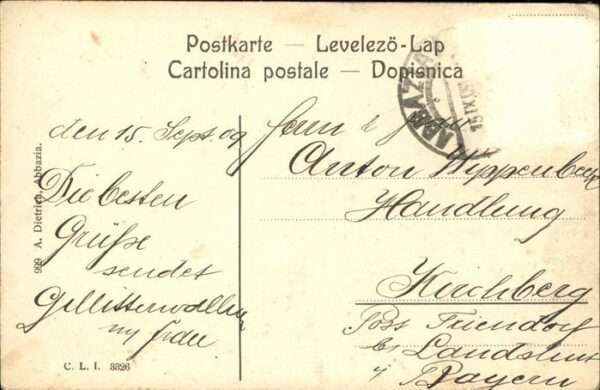 Postkarte — Levelező-Lap
Cartolina postale — Dopisnica
ABBAZIA
15 IX
den 15. Sept. 09
Die besten
Grüße
sendet
Herrn &
Anton Wippenbeck
Handlung
Kirchberg
Post
bei Landshut
Bayern
999 A. Dietrich, Abbazia.
C. L. I. 3326